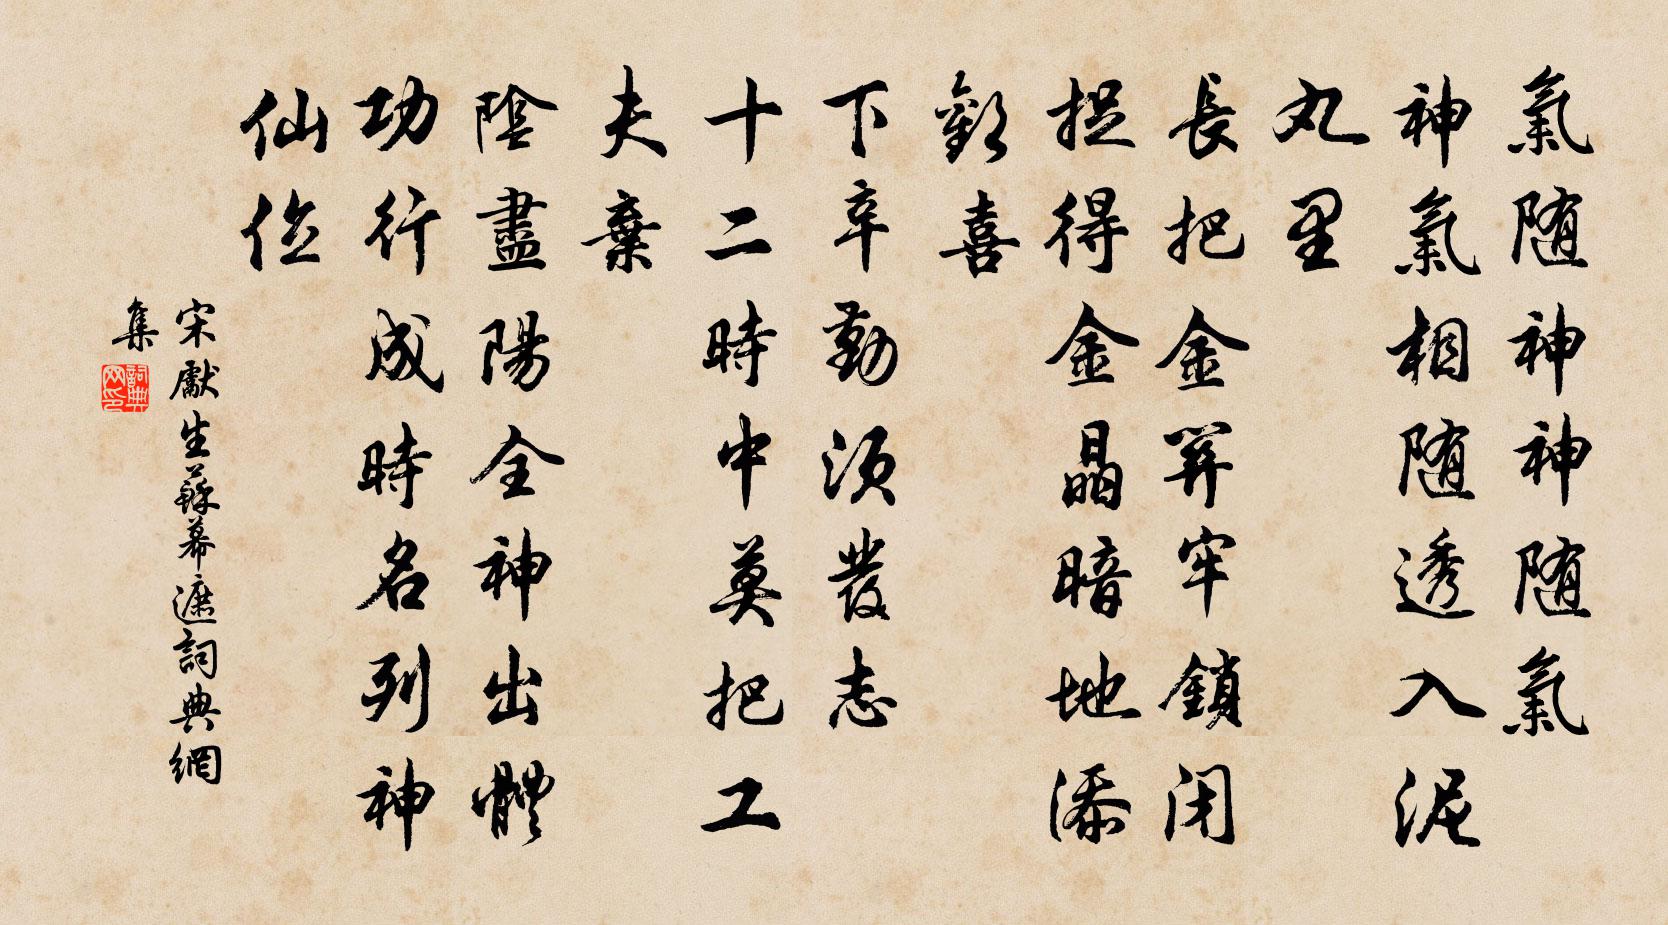 氣随神神随氣
神氣相随透入泥
丸里
長把金關牢鎖閉
捉得金晶暗地添
歡喜
下辛勤須發志
十二時中莫把工
夫棄
陰盡陽全神出體
功行成時名列神
仙位
宋獻生蘇幕遮詞典網
集
詞典网印